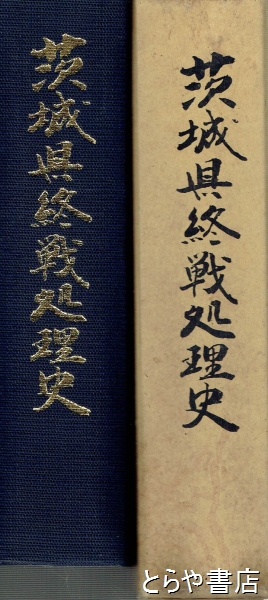 茨城県終戦処理史
茨城県終戦処理史
とらや書店